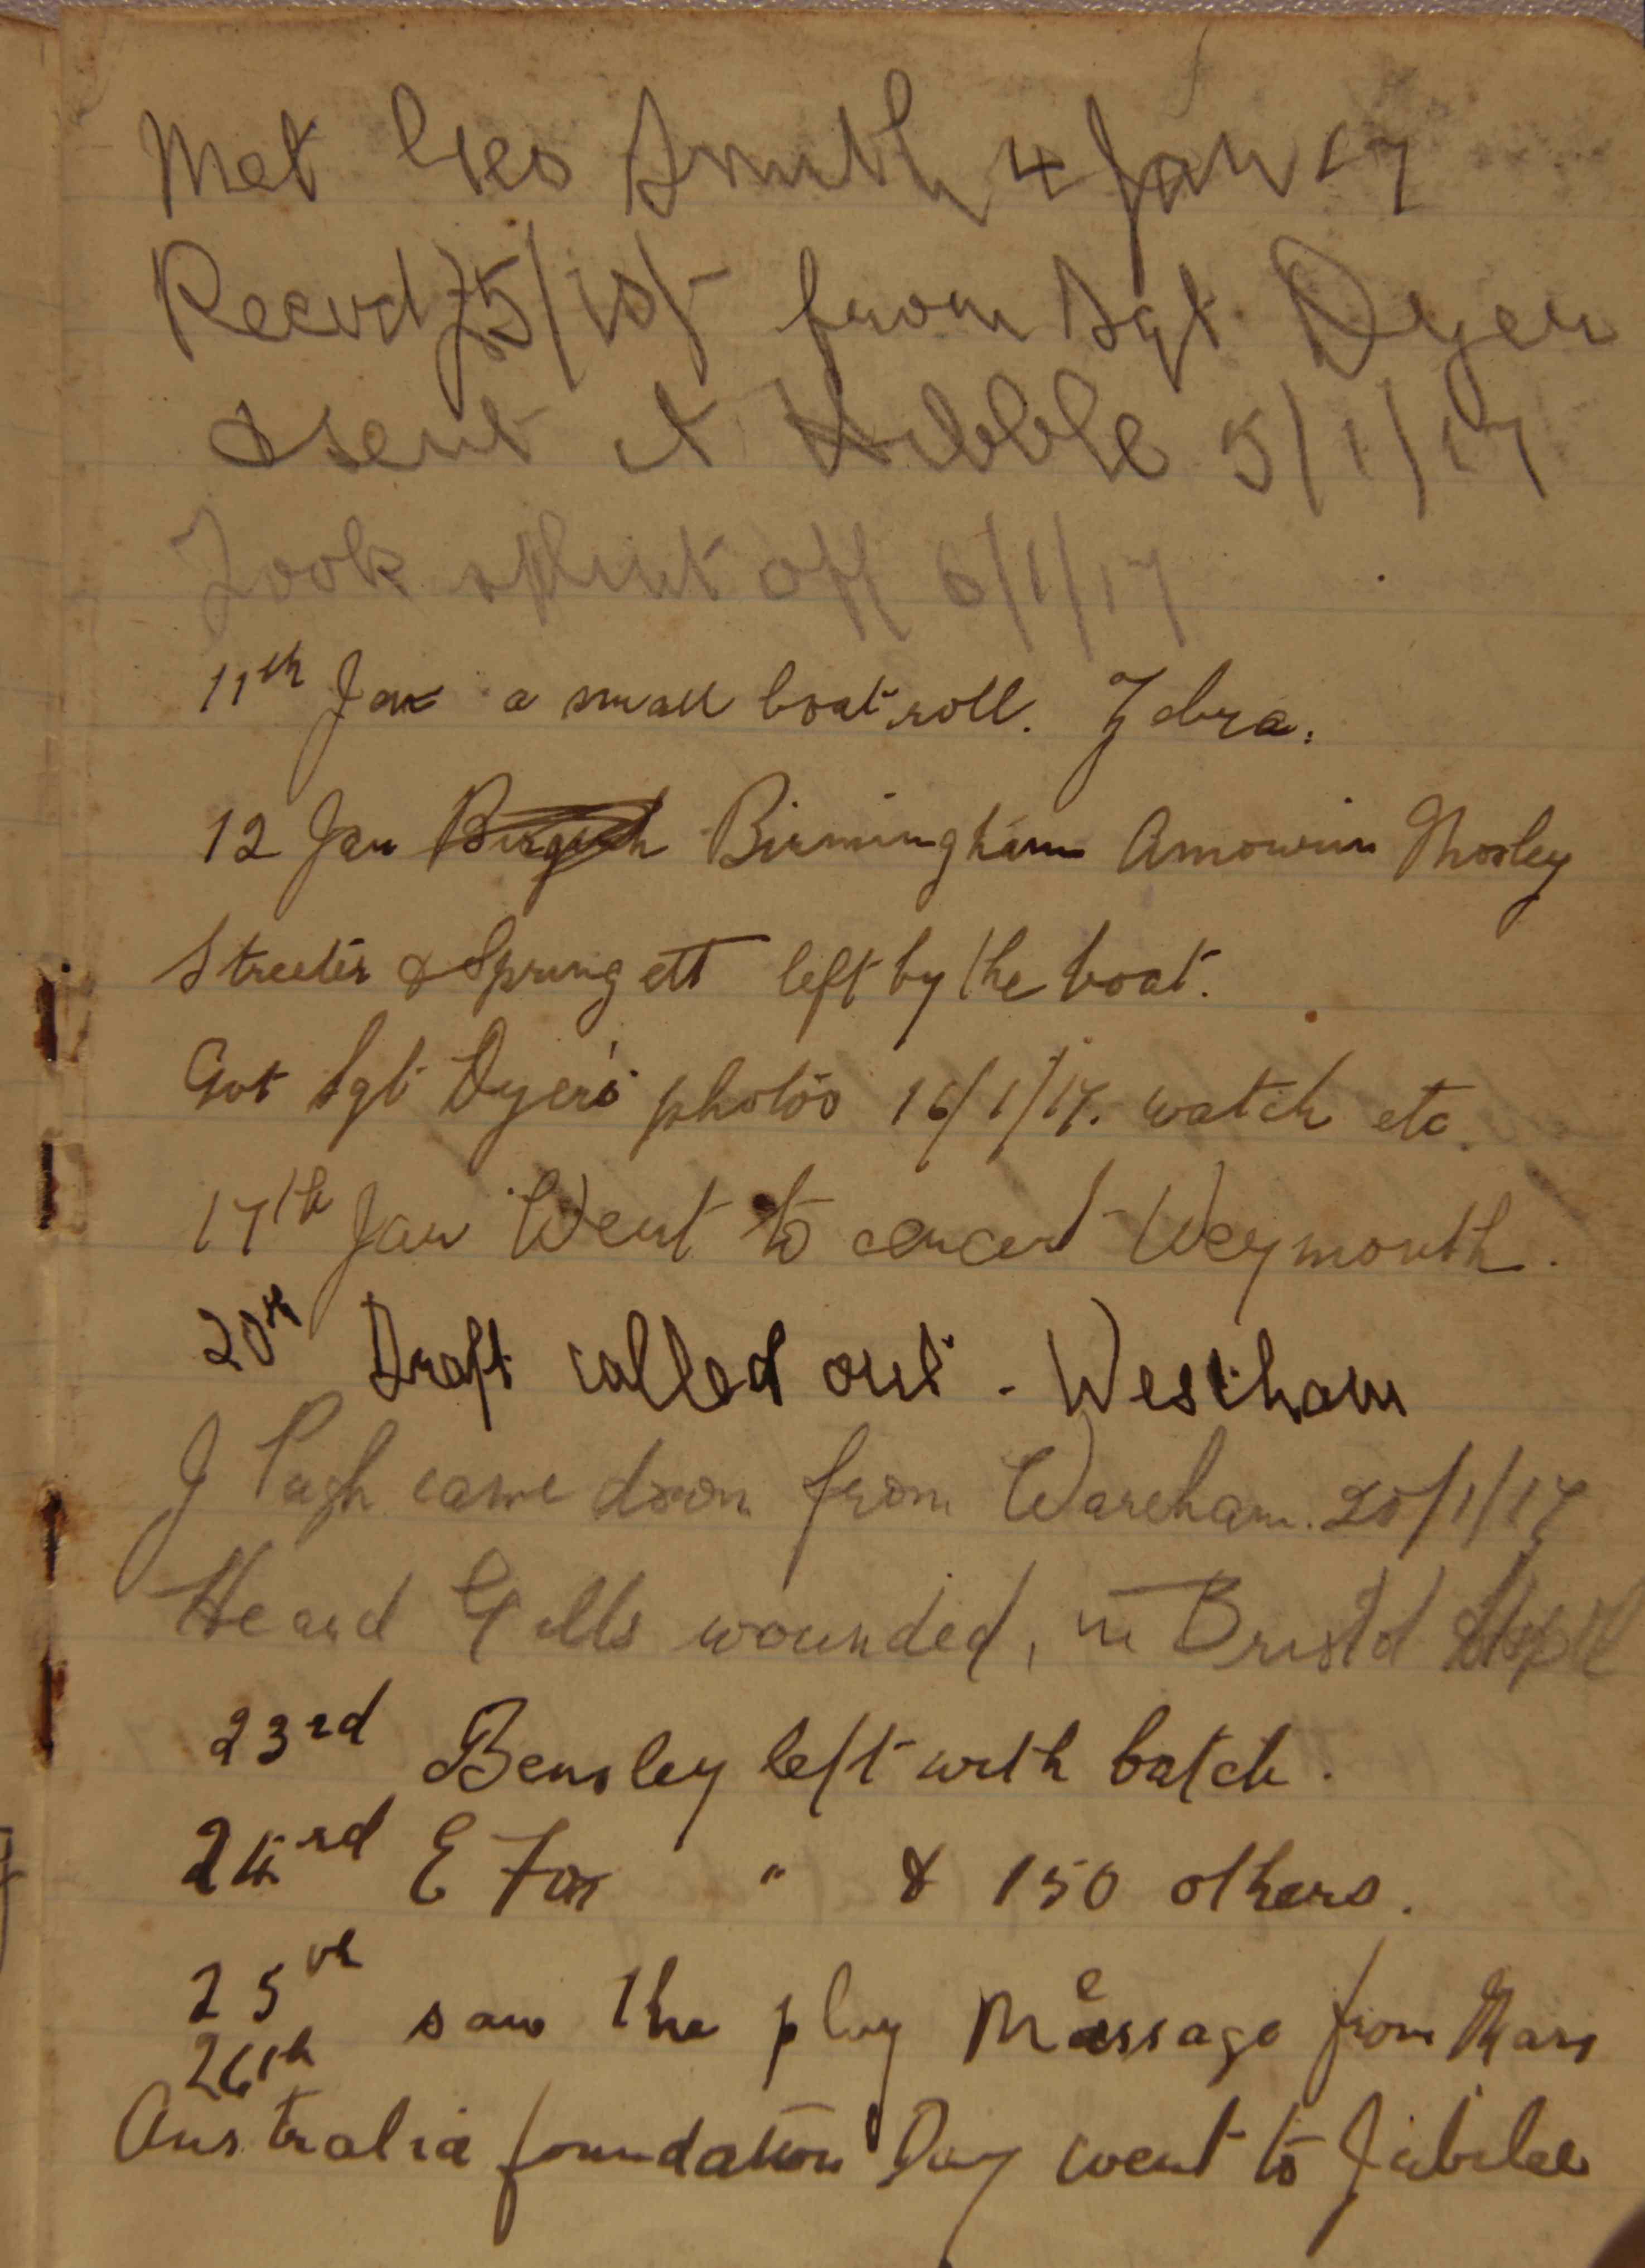 Met Geo Smith 4 Jan 17
Recvd £5/10/- from Sgt Dyer
& sent it Hibble 5/1/17
Took splint off 6/1/17
11th Jan a small boat roll. Zebra.
12 Jan Birmingham Mosley
Streeter & Springett left by the boat.
Got Sgt Dyer's photos 16/1/17. watch etc.
17th Jan Went to concert Weymouth.
20th Draft called out - Westham
J Pugh came down from Wareham. 20/1/17
Heard Gills wounded, in Bristol
23rd Bensley left with batch.
24rd E Fox " & 150 others.
25th saw the play Message from Mars
26th
Australia foundation Day went to Jubilee